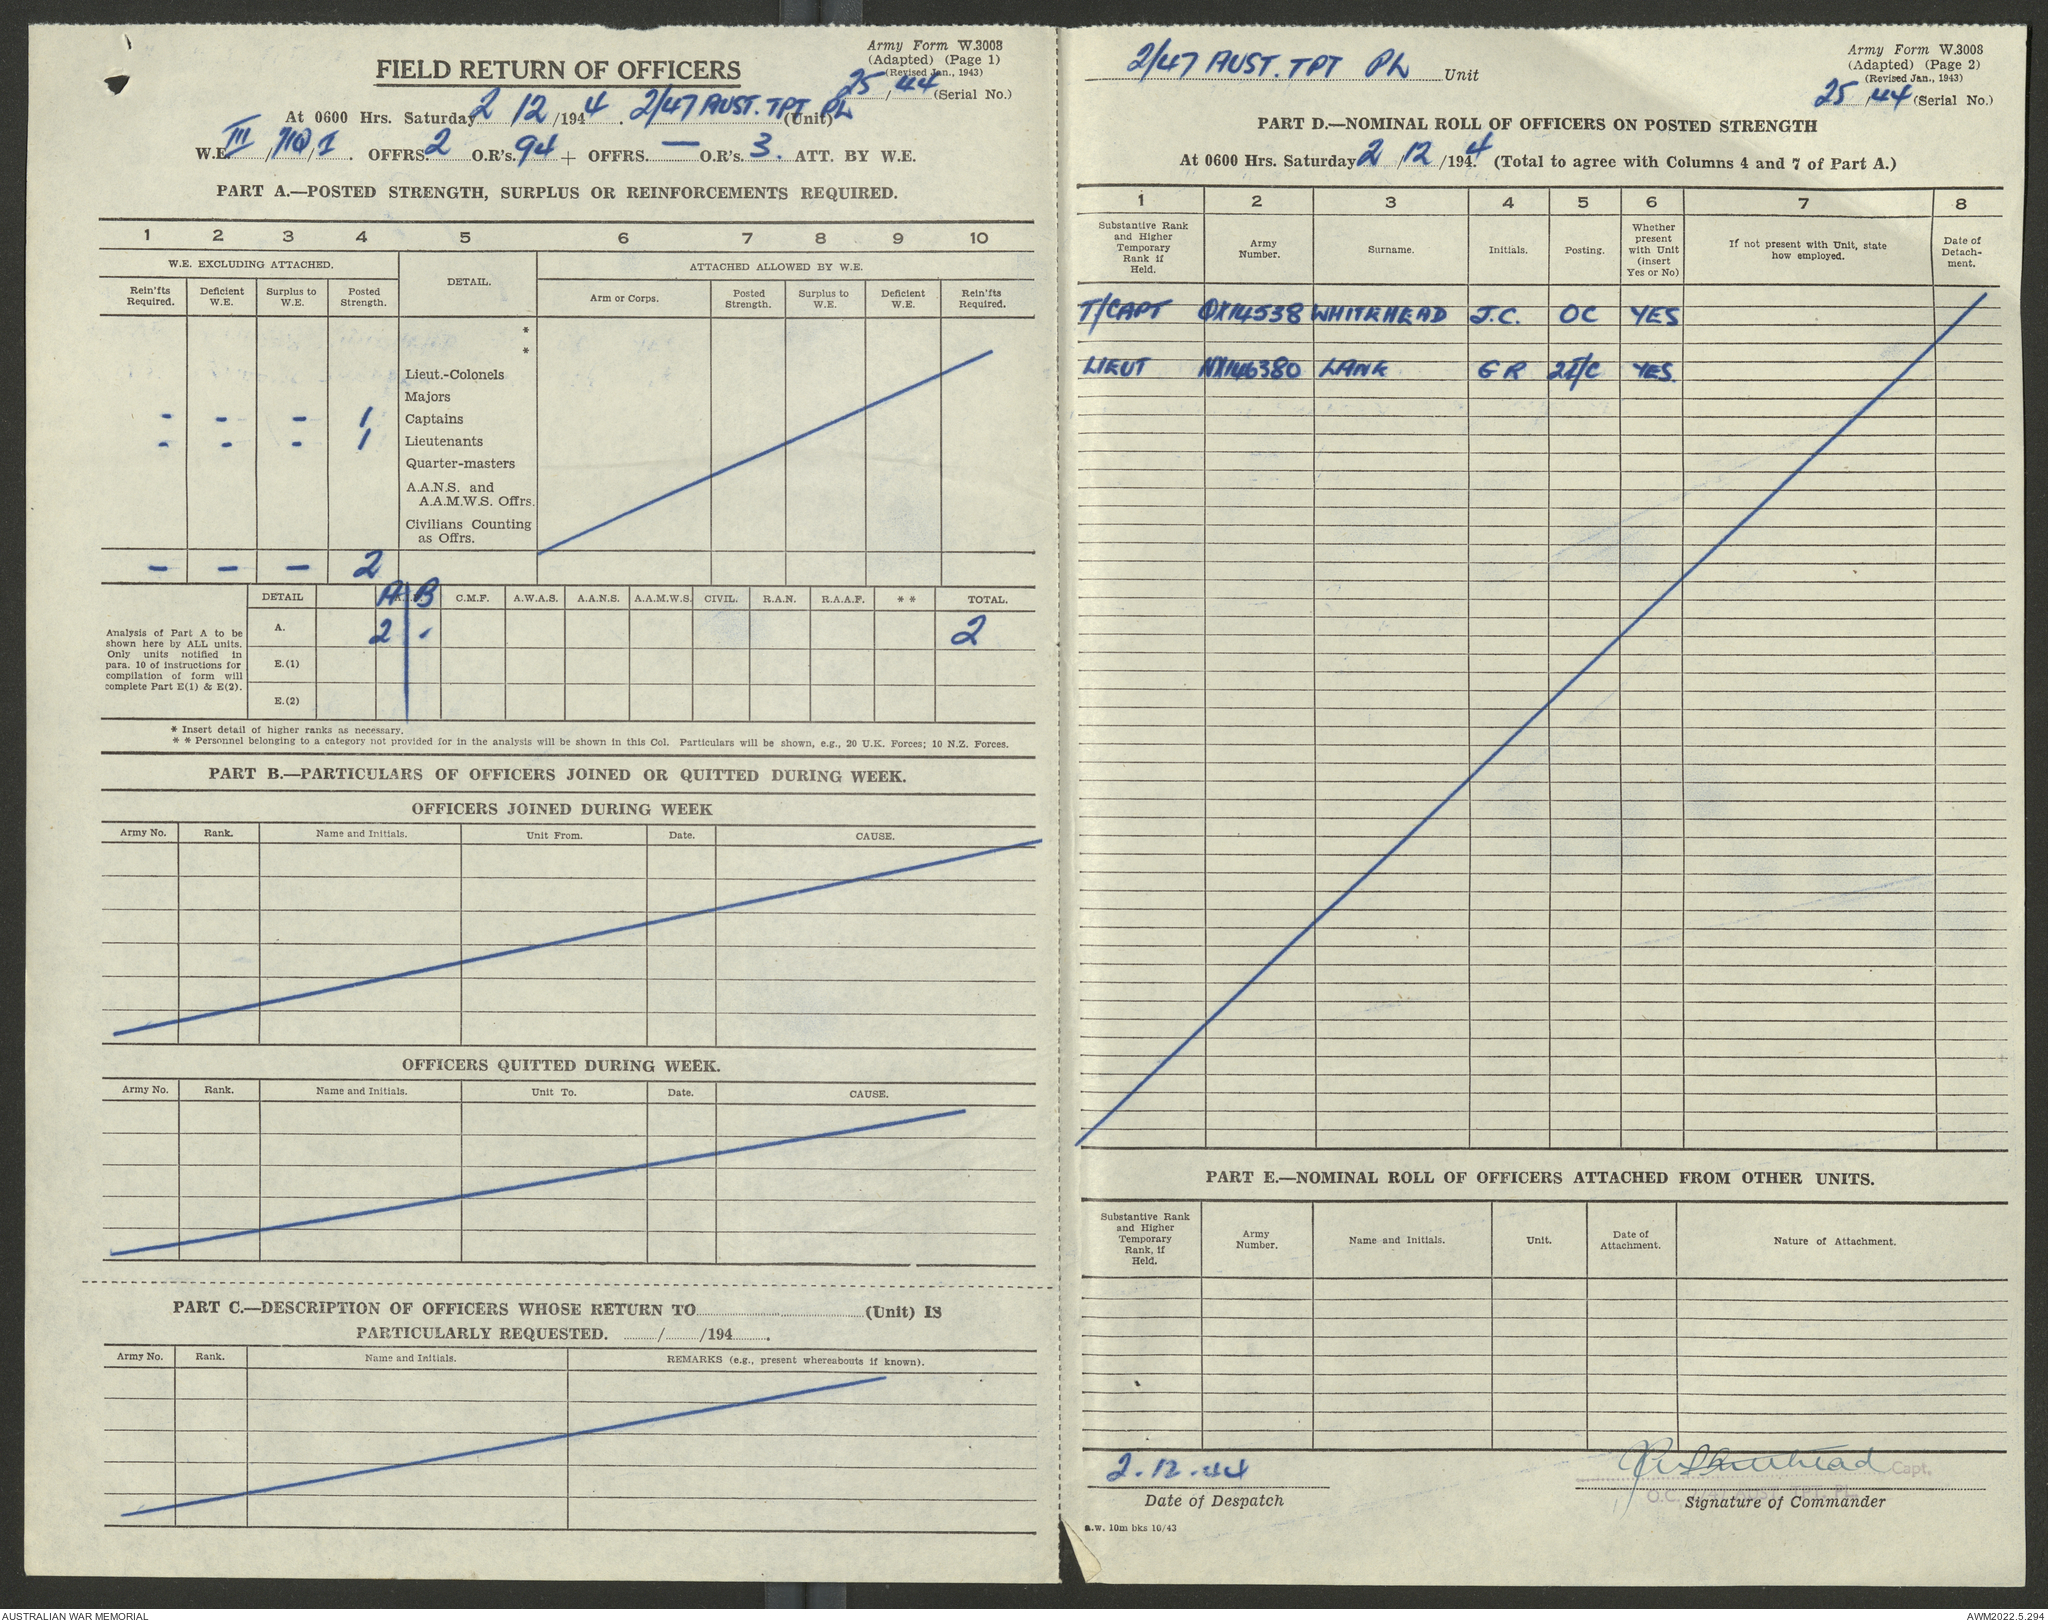 Army Form W.3008
(Adapted) (Page 1)
(Revised Jan., 1943)
25/44 (Serial No.)
FIELD RETURN OF OFFICERS
At 0600 Hrs. Saturday 2 12/1944. 2/47 AUST. TPT PL (Unit)
W.E. III/ /1. OFFRS. 2 O.R's. 94 + OFFRS. — O.R's. 3. ATT. BY W.E.
PART A.—POSTED STRENGTH, SURPLUS OR REINFORCEMENTS REQUIRED.
1 2 3 4 5 6 7 8 9 10
W.E. EXCLUDING ATTACHED. DETAIL. ATTACHED ALLOWED BY W.E.
Rein'fts Required. Deficient W.E. Surplus to W.E. Posted Strength. Arm or Corps. Posted Strength. Surplus to W.E. Deficient W.E. Rein'fts Required.
*
*
Lieut.-Colonels
Majors
- - - 1 Captains
- - - 1 Lieutenants
Quarter-masters
A.A.N.S. and
A.A.M.W.S. Offrs.
Civilians Counting
as Offrs.
- - - 2
DETAIL A B C.M.F. A.W.A.S. A.A.N.S. A.A.M.W.S. CIVIL. R.A.N. R.A.A.F. * * TOTAL.
Analysis of Part A to be
shown here by ALL units.
Only units notified in
para. 10 of instructions for
compilation of form will
complete Part E(1) & E(2).
A. 2 - 2
E.(1)
E.(2)
* Insert detail of higher ranks as necessary.
* * Personnel belonging to a category not provided for in the analysis will be shown in this Col. Particulars will be shown, e.g., 20 U.K. Forces; 10 N.Z. Forces.
PART B.—PARTICULARS OF OFFICERS JOINED OR QUITTED DURING WEEK.
OFFICERS JOINED DURING WEEK
Army No. Rank. Name and Initials. Unit From. Date. CAUSE.
OFFICERS QUITTED DURING WEEK.
Army No. Rank. Name and Initials. Unit To. Date. CAUSE.
PART C.—DESCRIPTION OF OFFICERS WHOSE RETURN TO (Unit) IS
PARTICULARLY REQUESTED. / /194 .
Army No. Rank. Name and Initials. REMARKS (e.g., present whereabouts if known).
2/47 AUST. TPT PL Unit
Army Form W.3008
(Adapted) (Page 2)
(Revised Jan., 1943)
25/44 (Serial No.)
PART D.—NOMINAL ROLL OF OFFICERS ON POSTED STRENGTH
At 0600 Hrs. Saturday 2/12/1944. (Total to agree with Columns 4 and 7 of Part A.)
1 2 3 4 5 6 7 8
Substantive Rank and Higher Temporary Rank if Held. Army Number. Surname. Initials. Posting. Whether present with Unit (insert Yes or No) If not present with Unit, state how employed. Date of Detach-ment.
T/CAPT QX14538 WHITEHEAD J.C. OC YES
LIEUT NX146380 LANE G R 2I/C YES.
PART E.—NOMINAL ROLL OF OFFICERS ATTACHED FROM OTHER UNITS.
Substantive Rank and Higher Temporary Rank, if Held. Army Number. Name and Initials. Unit. Date of Attachment. Nature of Attachment.
2.12.44
Date of Despatch
JC Whitehead Capt.
O.C. 2/47 AUST. TPT. PL.
Signature of Commander
a.w. 10m bks 10/43
AUSTRALIAN WAR MEMORIAL
AWM2022.5.294